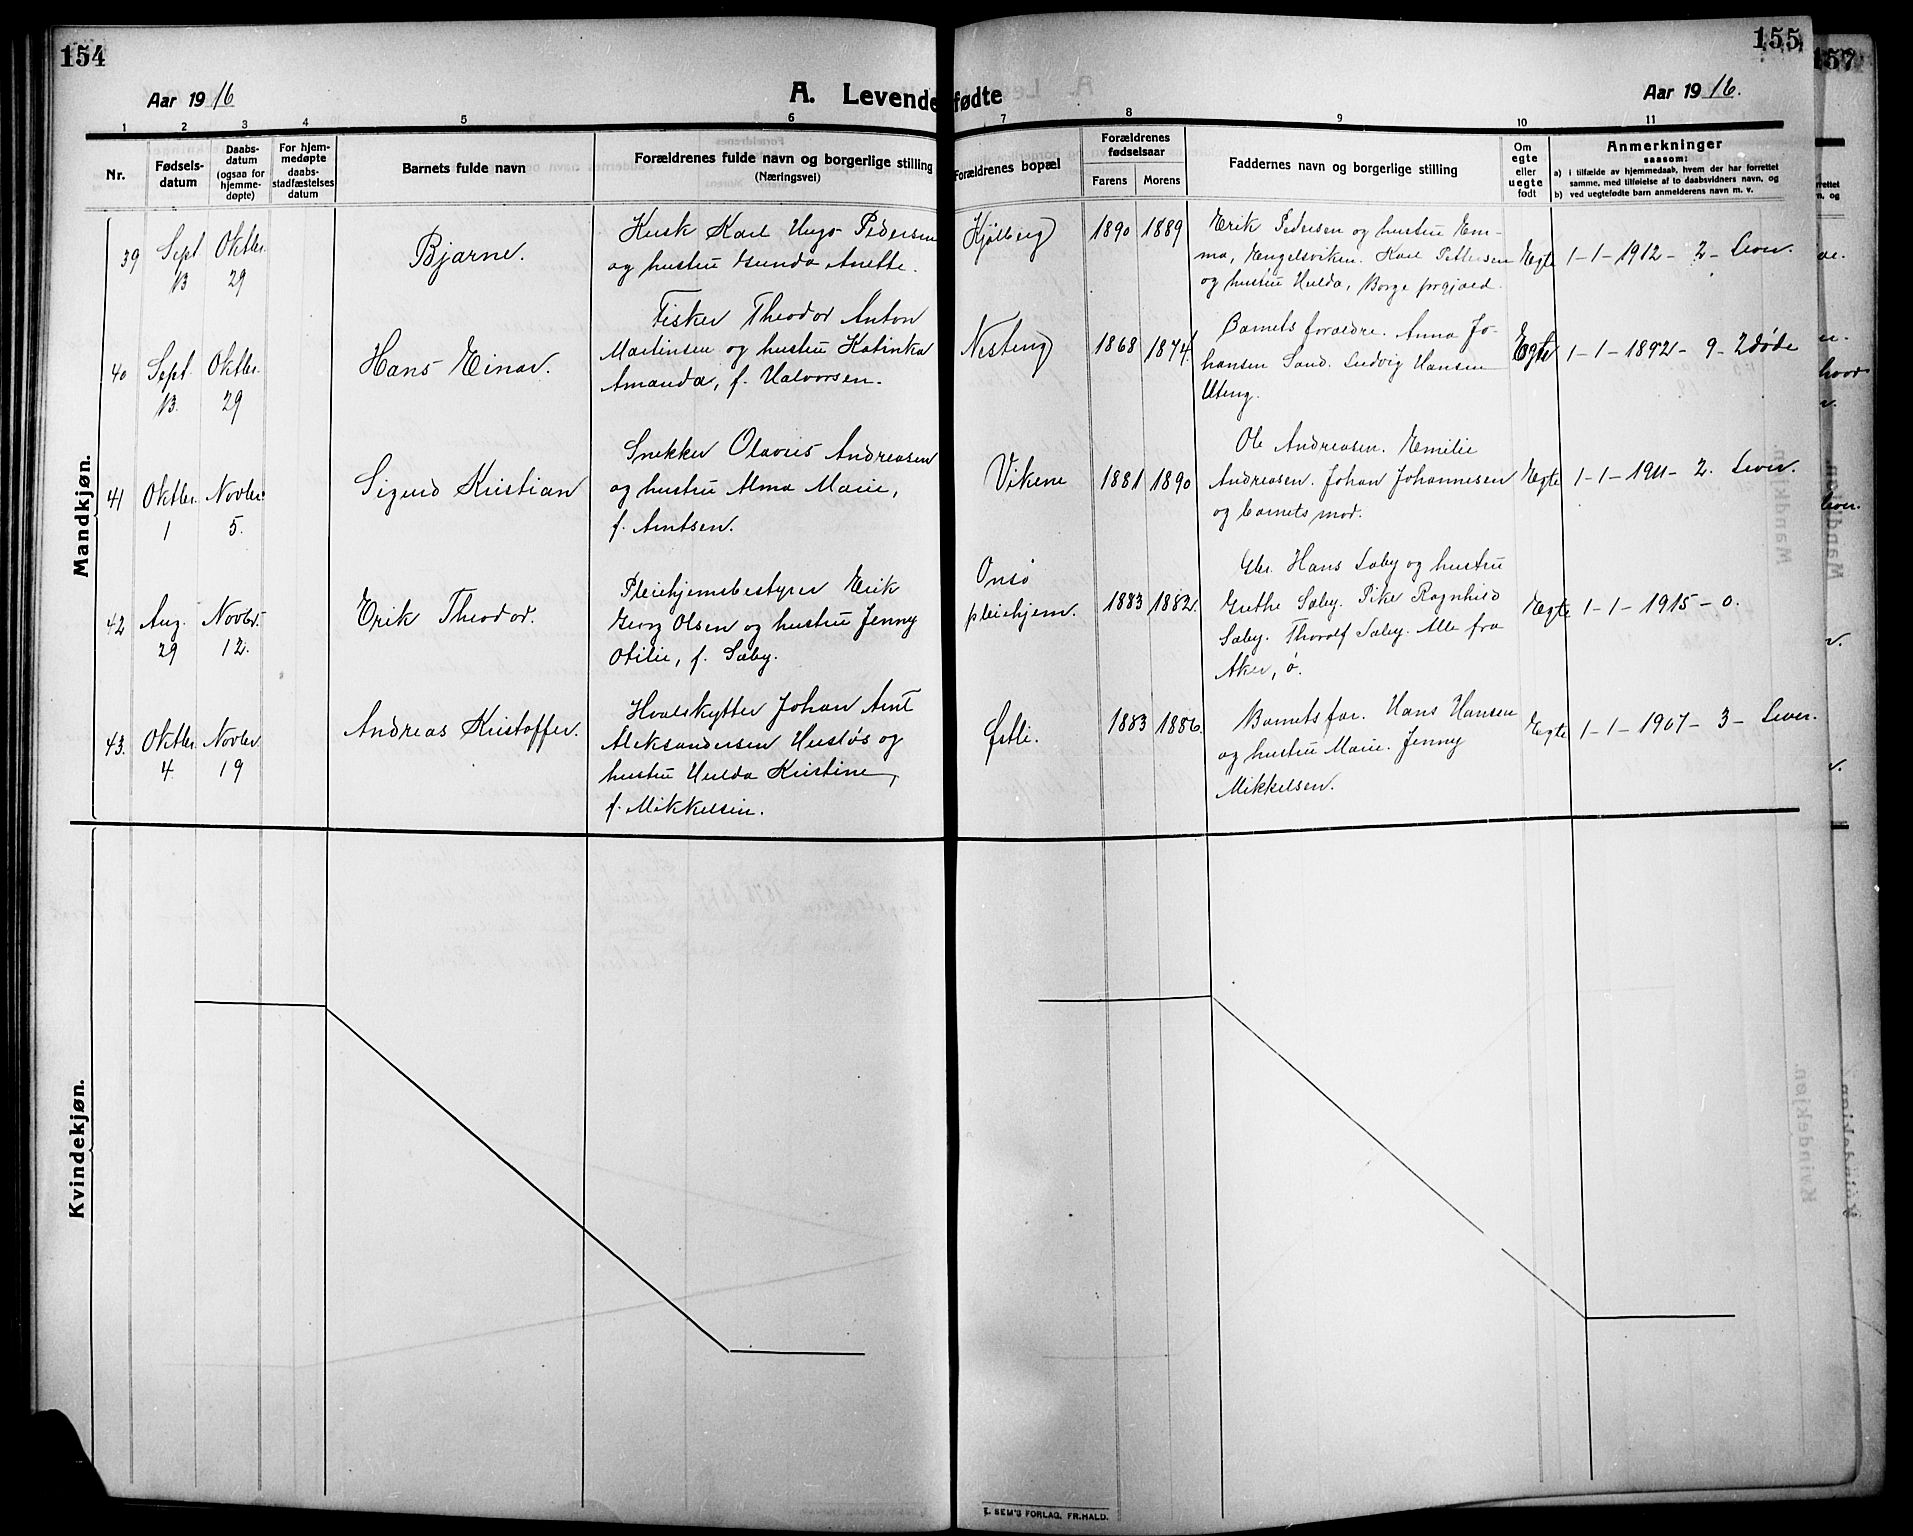 154
Aar 1916
A. Levendefødte
155
Aar 1916.
157
1 2 3 4 5 6 7 8 9 10 11
Nr.
Fødsels-
datum
Daabs-
datum
(ogsaa for
hjemme-
døpte)
For hjem-
medøpte
daabs-
stadfæstelses
datum
Barnets fulde navn
Forældrenes fulde navn og borgerlige stilling
(Næringsvei)
Forældrenes bopæl
Forældrenes
fødselsaar
Farens Morens
Faddernes navn og borgerlige stilling
Om
egte
eller
uegte
født
Anmerkninger
saasom:
a) i tilfælde av hjemmedaab, hvem der har forrettet
samme, med tilføielse af to daabsvidners navn, og
b) ved uegtefødte barn anmelderens navn m. v.
Mandkjøn.
39
Sept. 13
Oktbr. 29
Bjarne.
Kusk Karl Hugo Pedersen
og hustru Gunda Anette.
Kjølberg
1890 1889
Erik Pedersen og hustru Em-
ma, Engelsviken. Karl Pettersen
og hustru Hulda, Borge prgjæld.
Egte
1-1-1912-2-Lever.
40
Sept. 13.
Oktbr. 29
Hans Einar.
Fisker Theodor Anton
Martinsen og hustru Katinka
Amanda, f. Halvorsen.
Nesteng
1868 1874.
Barnets forældre. Anna Jo-
hansen Sand. Ludvig Hansen
Uteng.
Egte
1-1-1892-9-2døde
41
Oktbr. 1
Novbr. 5.
Sigurd Kristian
Snekker Olavus Andreasen
og hustru Alma Marie,
f. Arntsen.
Vikene
1881 1890
Ole Andreasen. Emilie
Andreasen. Johan Johannesen
og barnets mor.
Egte
1-1-1911-2. Lever.
42
Aug. 29
Novbr. 12.
Erik Theodor.
Pleiehjemsbestyrer Erik
Georg Olsen og hustru Jenny
Otilie, f. Sæby.
Onsø
pleiehjem.
1883 1882.
Gbr. Hans Sæby og hustru
Grethe Sæby. Pike Ragnhild
Sæby. Thoralf Sæby. Alle fra
Aker, ø.
Egte
1-1-1915-0.
43.
Oktbr. 4.
Novbr. 19
Andreas Kristoffer.
Hvalskytter Johan Arnt
Aleksandersen Husløs og
hustru Hulda Kristine,
f. Mikkelsen.
Østli.
1883 1886.
Barnets far. Hans Hansen
og hustru Marie. Jenny
Mikkelsen.
Egte
1-1-1907-3-Lever.
Kvindekjøn.
E. SEM'S FORLAG, FR.HALD.